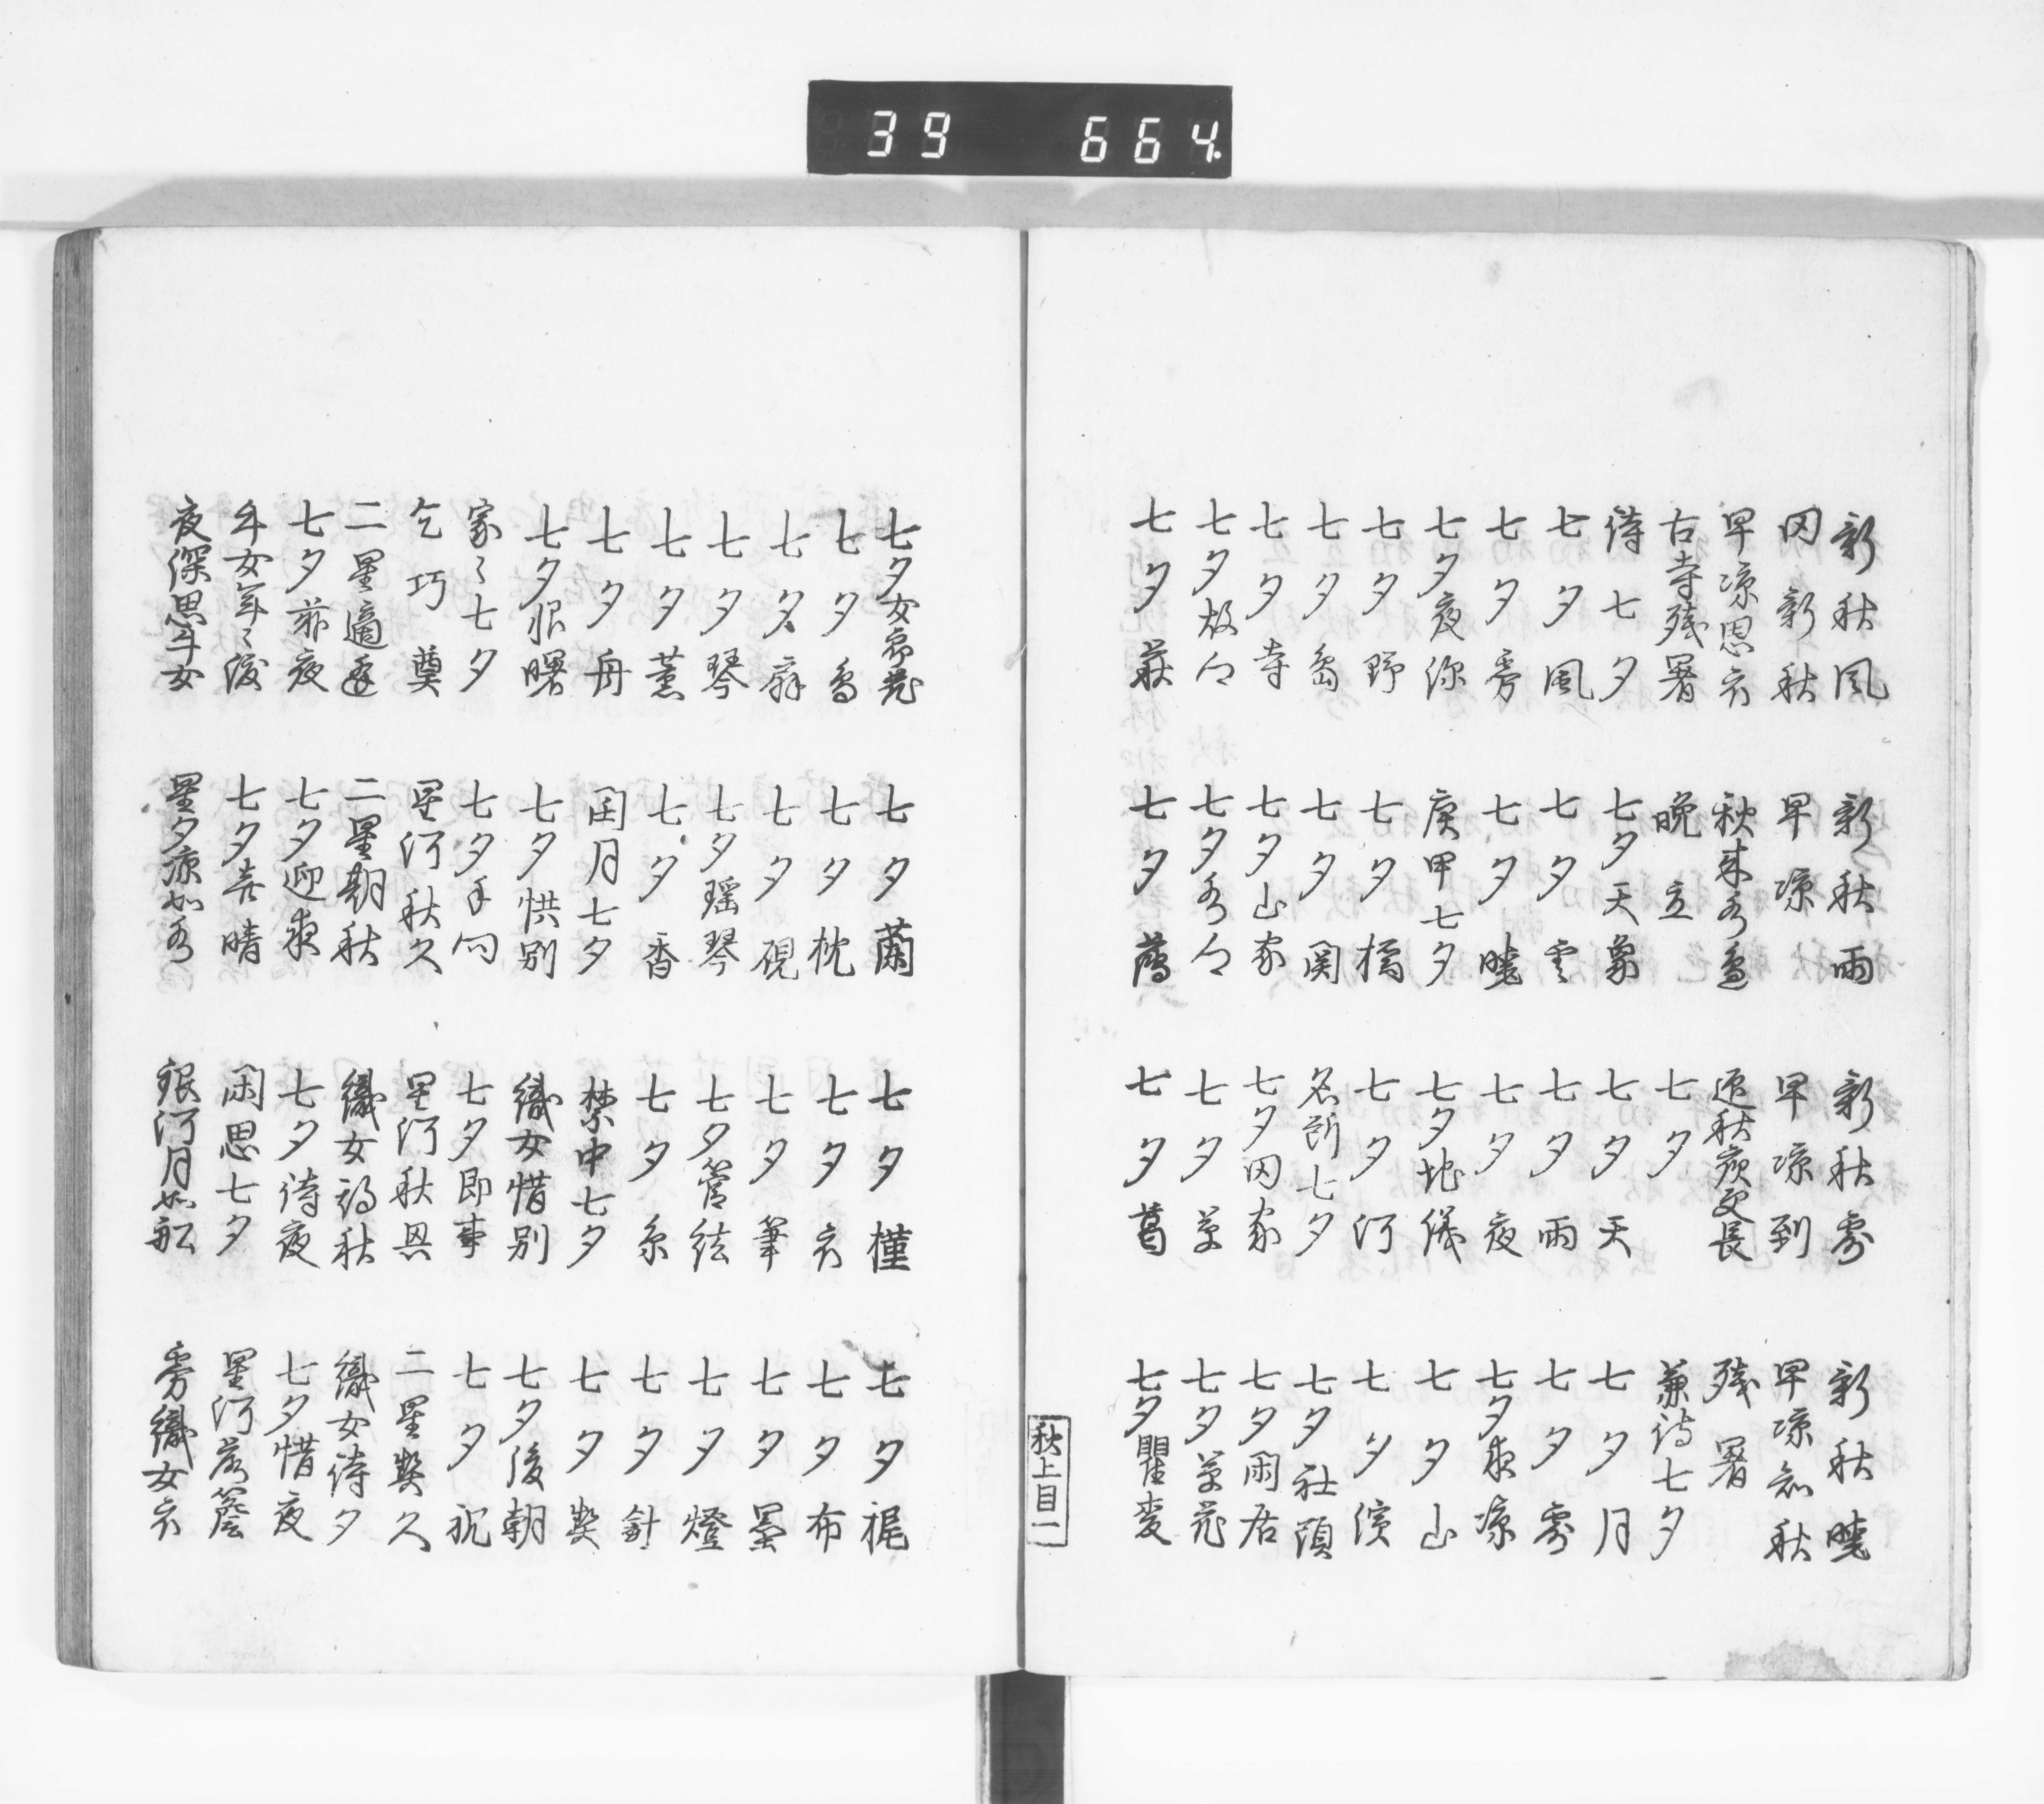 新秋風　新秋雨　新秋露　新秋暁
新秋　早涼　早涼到　早涼知秋
早涼思衣　秋来水辺　逐秋夜更長　残暑
古寺残暑　晩立　七夕　兼待七夕
待七夕　七夕天象　七夕天　七夕月
七夕風　七夕雲　七夕雨　七夕露
七夕霧　七夕暁　七夕夜　七夕夜涼
七夕夜深　庚申七夕　七夕地儀　七夕山
七夕野　七夕橋　七夕河　七夕濱
七夕嶋　七夕関　名所七夕　七夕社頭
七夕寺　七夕山家　七夕田家　七夕閑居
七夕故郷　七夕水郷　七夕草　七夕草花
七夕萩　七夕薄　七夕葛　七夕瞿麦
秋上目一
七夕女郎花　七夕蘭　七夕槿　七夕梶
七夕鳥　七夕枕　七夕衣　七夕布
七夕扇　七夕硯　七夕筆　七夕墨
七夕琴　七夕瑶琴　七夕管絃　七夕燈
七夕薫　七夕香　七夕糸　七夕針
七夕舟　閏月七夕　禁中七夕　七夕契
七夕恨曙　七夕惜別　織女惜別　七夕後朝
家々七夕　七夕手向　七夕即事　七夕祝
乞巧奠　星河秋久　星河秋興　二星契久
二星適逢　二星期秋　織女　秋　織女待夕
七夕前夜　七夕迎夜　七夕待夜　七夕惜夜
牛女年々渡　七夕喜晴　閑思七夕　星河落簷
夜深思牛女　星夕涼如水　銀河月如船　霧織女衣
39 664